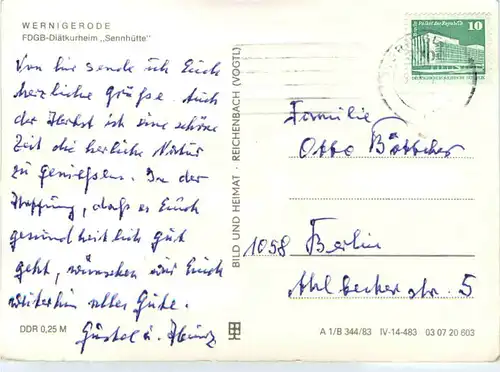 WERNIGERODE
FDGB-Diätkurheim „Sennhütte"
Von hier sende ich Euch
herzliche Grüße. Auch
der Herbst ist eine schöne
Zeit die herliche Natur
zu genießen. In der
Hoffnung, daß es Euch
gesundheitlich gut
geht, wünschen wir Euch
weiterhin alles Gute.
Gustel u. Heinz
DDR 0,25 M
BILD UND HEIMAT · REICHENBACH (VOGTL)
Palast der Republik
10
Familie
Otto Böttcher
1058 Berlin
Ahlbecker str. 5
A 1/B 344/83 IV-14-483 03 07 20 603